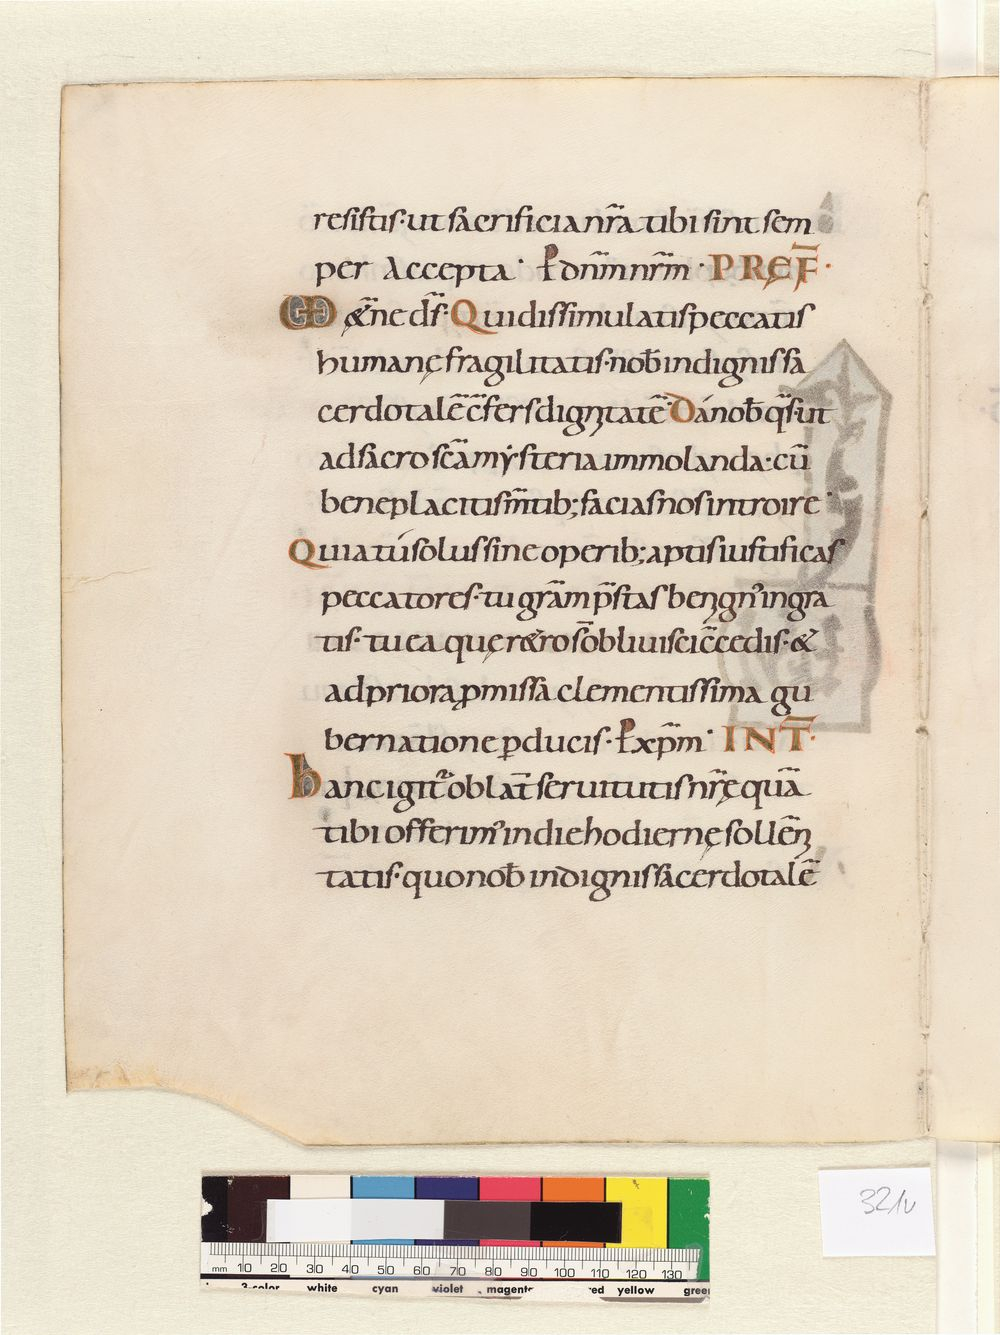 resistis· ut sacrificia nr̃a tibi sint sem
per accepta· P̷ dñm nr̃m· PREF̄·
UD &̃ne ds̃· Qui dissimulatis peccatis
humanę fragilitatis· nob̄ indignis sa
cerdotalē c̃fers dignitatē· Dá nob̄ q̃s· ut
ad sacro sc̃a mẏsteria immolanda· cū
beneplacitis m̃tib; facias nos introire·
Quia tú solus sine operib; aptis iustificas
peccatores· tu gr̃am p̃stas benign᾿ ingra
tis· tu ea quę r&ro st̃ oblivisci c̃cedis· &
ad priora ꝓmissa clementissima gu
bernatione ꝑducis· P̷ xp̃m· INT̄·
hanc igit᾿ oblat̄ servitutis nr̃ę quā
tibi offerim᾿ in die hodiernę sollēn
tatis· quo nob̄ indignis sacerdotalē
321v
mm 10 20 30 40 50 60 70 80 90 100 110 120 130
3-color white cyan violet magenta red yellow green